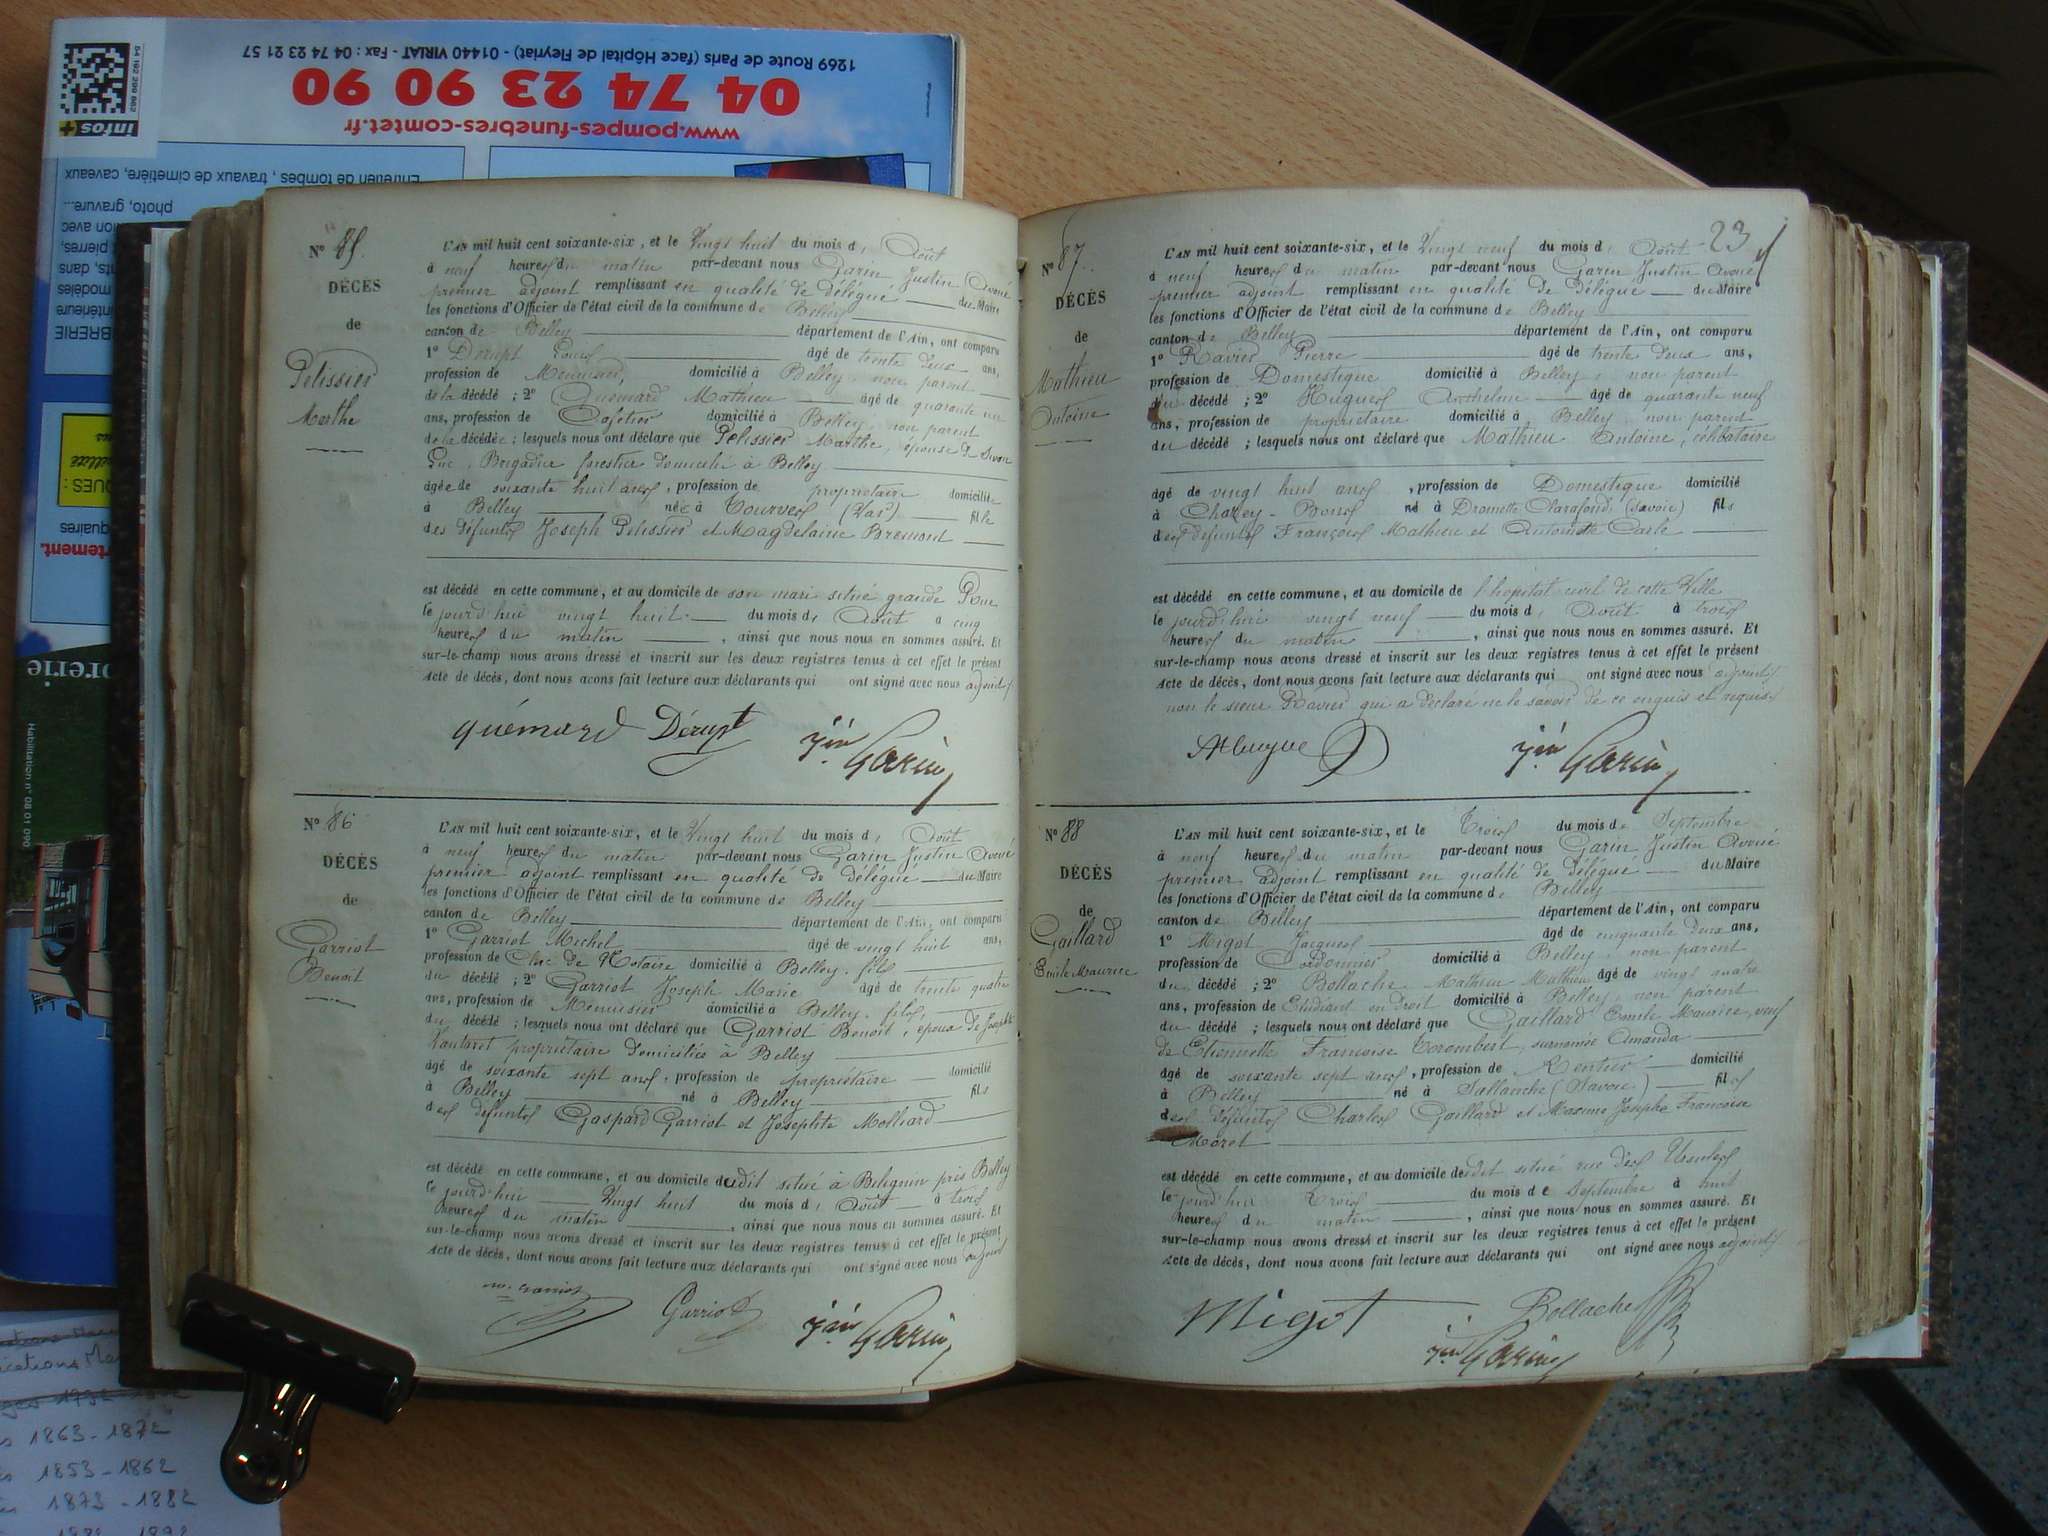 1269 Route de Paris (face Hôpital de Fleyriat) - 01440 VIRIAT - Fax : 04 74 23 21 57
04 74 23 90 90
www.pompes-funebres-comtet.fr
infos+
Entretien de tombes, travaux de cimetière, caveaux
photo, gravure...
N° 85.
DÉCÈS
de
Pelissier
Marthe
L'AN mil huit cent soixante-six, et le Vingt huit du mois d' Août
à neuf heures du matin par-devant nous Garin Justin Avoué
premier adjoint remplissant en qualité de Délégué du Maire
les fonctions d'Officier de l'état civil de la commune de Belley
canton de Belley département de l'Ain, ont comparu
1° Dérupt Louis âgé de trente deux ans,
profession de Menuisier, domicilié à Belley, non parent
de la décédé ; 2° Quémard Mathieu âgé de quarante un
ans, profession de Cafetier domicilié à Belley, non parent
de la décédée ; lesquels nous ont déclaré que Pelissier Marthe, épouse de
Luc, Brigadier forestier domicilié à Belley
âgée de soixante huit ans, profession de propriétaire domiciliée
à Belley née à Tourves (Var) fille
des défunts Joseph Pelissier et Magdelaine Bremont
est décédé en cette commune, et au domicile de son mari situé grande Rue
le jourd'hui vingt huit du mois d' Août à cinq
heures du matin , ainsi que nous nous en sommes assuré. Et
sur-le-champ nous avons dressé et inscrit sur les deux registres tenus à cet effet le présent
acte de décès, dont nous avons fait lecture aux déclarants qui ont signé avec nous adjoint
quémard Dérupt Jin Garin
N° 86
DÉCÈS
de
Garriot
Benoit
L'AN mil huit cent soixante-six, et le Vingt huit du mois d' Août
à neuf heures du matin par-devant nous Garin Justin Avoué
premier adjoint remplissant en qualité de Délégué du Maire
les fonctions d'Officier de l'état civil de la commune de Belley
canton de Belley département de l'Ain, ont comparu
1° Garriot Michel âgé de vingt huit ans,
profession de Clerc de Notaire domicilié à Belley, fils
du décédé ; 2° Garriot Joseph Marie âgé de trente quatre
ans, profession de Menuisier domicilié à Belley, fils,
du décédé ; lesquels nous ont déclaré que Garriot Benoit, époux de Josephte
propriétaire domiciliée à Belley
âgé de soixante sept ans, profession de propriétaire domicilié
à Belley né à Belley fils
des défunts Gaspard Garriot et Josephte Molliard
est décédé en cette commune, et au domicile dudit situé à Belignin près Belley
le jourd'hui Vingt huit du mois d' Août à trois
heures du matin , ainsi que nous nous en sommes assuré. Et
sur-le-champ nous avons dressé et inscrit sur les deux registres tenus à cet effet le présent
acte de décès, dont nous avons fait lecture aux déclarants qui ont signé avec nous adjoint
Garriot Jin Garin
23
N° 87.
DÉCÈS
de
Mathieu
Antoine
L'AN mil huit cent soixante-six, et le Vingt neuf du mois d' Août
à neuf heures du matin par-devant nous Garin Justin Avoué
premier adjoint remplissant en qualité de Délégué du Maire
les fonctions d'Officier de l'état civil de la commune de Belley
canton de Belley département de l'Ain, ont comparu
1° Ravier Pierre âgé de trente deux ans,
profession de Domestique domicilié à Belley, non parent
du décédé ; 2° Hugues Anthelme âgé de quarante neuf
ans, profession de propriétaire domicilié à Belley, non parent
du décédé ; lesquels nous ont déclaré que Mathieu Antoine, célibataire
âgé de vingt huit ans, profession de Domestique domicilié
à Chazey-Bons né à Clarafond (Savoie) fils
des défunts François Mathieu et Antoinette
est décédé en cette commune, et au domicile de l'hopital civil de cette Ville
le jourd'hui vingt neuf du mois d' Août à trois
heures du matin , ainsi que nous nous en sommes assuré. Et
sur-le-champ nous avons dressé et inscrit sur les deux registres tenus à cet effet le présent
acte de décès, dont nous avons fait lecture aux déclarants qui ont signé avec nous adjoint
non le sieur Ravier qui a déclaré ne le savoir de ce enquis et requis
Jin Garin
N° 88
DÉCÈS
de
Gaillard
Emile Maurice
L'AN mil huit cent soixante-six, et le Trois du mois de Septembre
à neuf heures du matin par-devant nous Garin Justin Avoué
premier adjoint remplissant en qualité de Délégué du Maire
les fonctions d'Officier de l'état civil de la commune de Belley
canton de Belley département de l'Ain, ont comparu
1° Migot Jacques âgé de cinquante deux ans,
profession de Cordonnier domicilié à Belley, non parent
du décédé ; 2° Bollache Mathieu Mathieu âgé de vingt quatre
ans, profession de Etudiant en Droit domicilié à Belley, non parent
du décédé ; lesquels nous ont déclaré que Gaillard Emile Maurice, veuf
de Etiennette Françoise Trembert, surnomée Amanda
âgé de soixante sept ans, profession de Rentier domicilié
à Belley né à Sallanche (Savoie) fils
des défunts Charles Gaillard et Maxime Josephe Francoise
Moret
est décédé en cette commune, et au domicile dudit situé rue des Ursules
le jourd'hui Trois du mois de Septembre à huit
heures du matin , ainsi que nous nous en sommes assuré. Et
sur-le-champ nous avons dressé et inscrit sur les deux registres tenus à cet effet le présent
acte de décès, dont nous avons fait lecture aux déclarants qui ont signé avec nous adjoint
Migot Bollache
Jin Garin
Habilitation n° 08 01 090
1863-1872
1853-1862
1873-1882